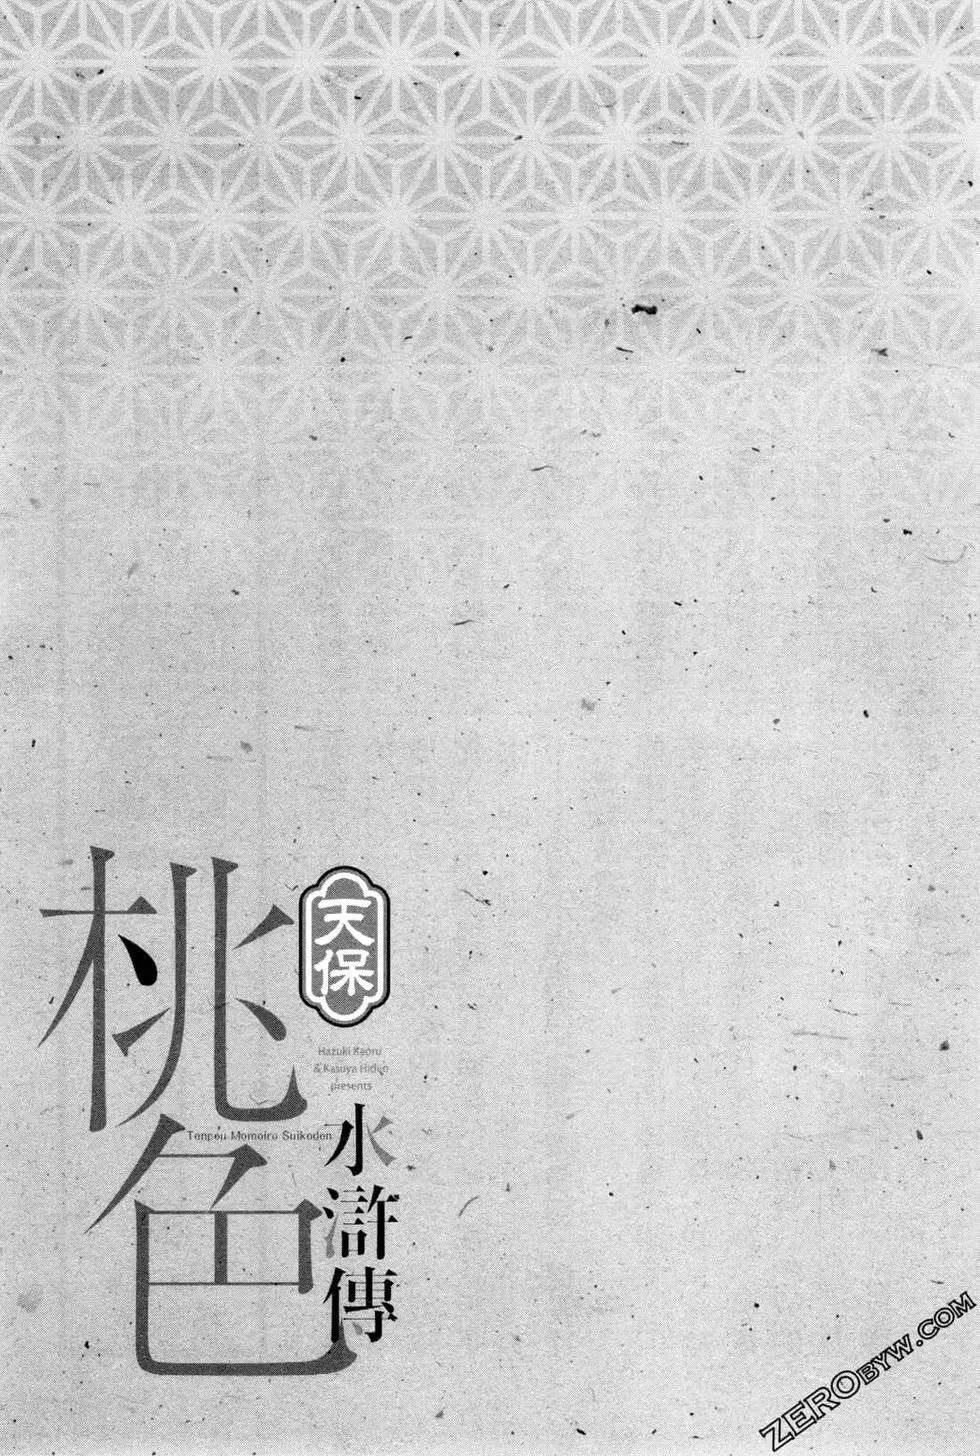 天保
桃色
水滸傳
Hazuki Kaoru
& Kasuya Hideo
presents
Tenpou Momoiro Suikoden
ZEROBYW.COM